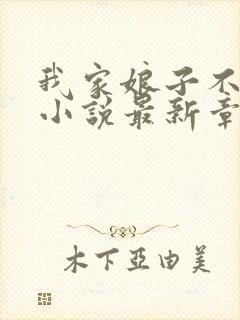 我家娘子不
小説最新章
木下亞由美